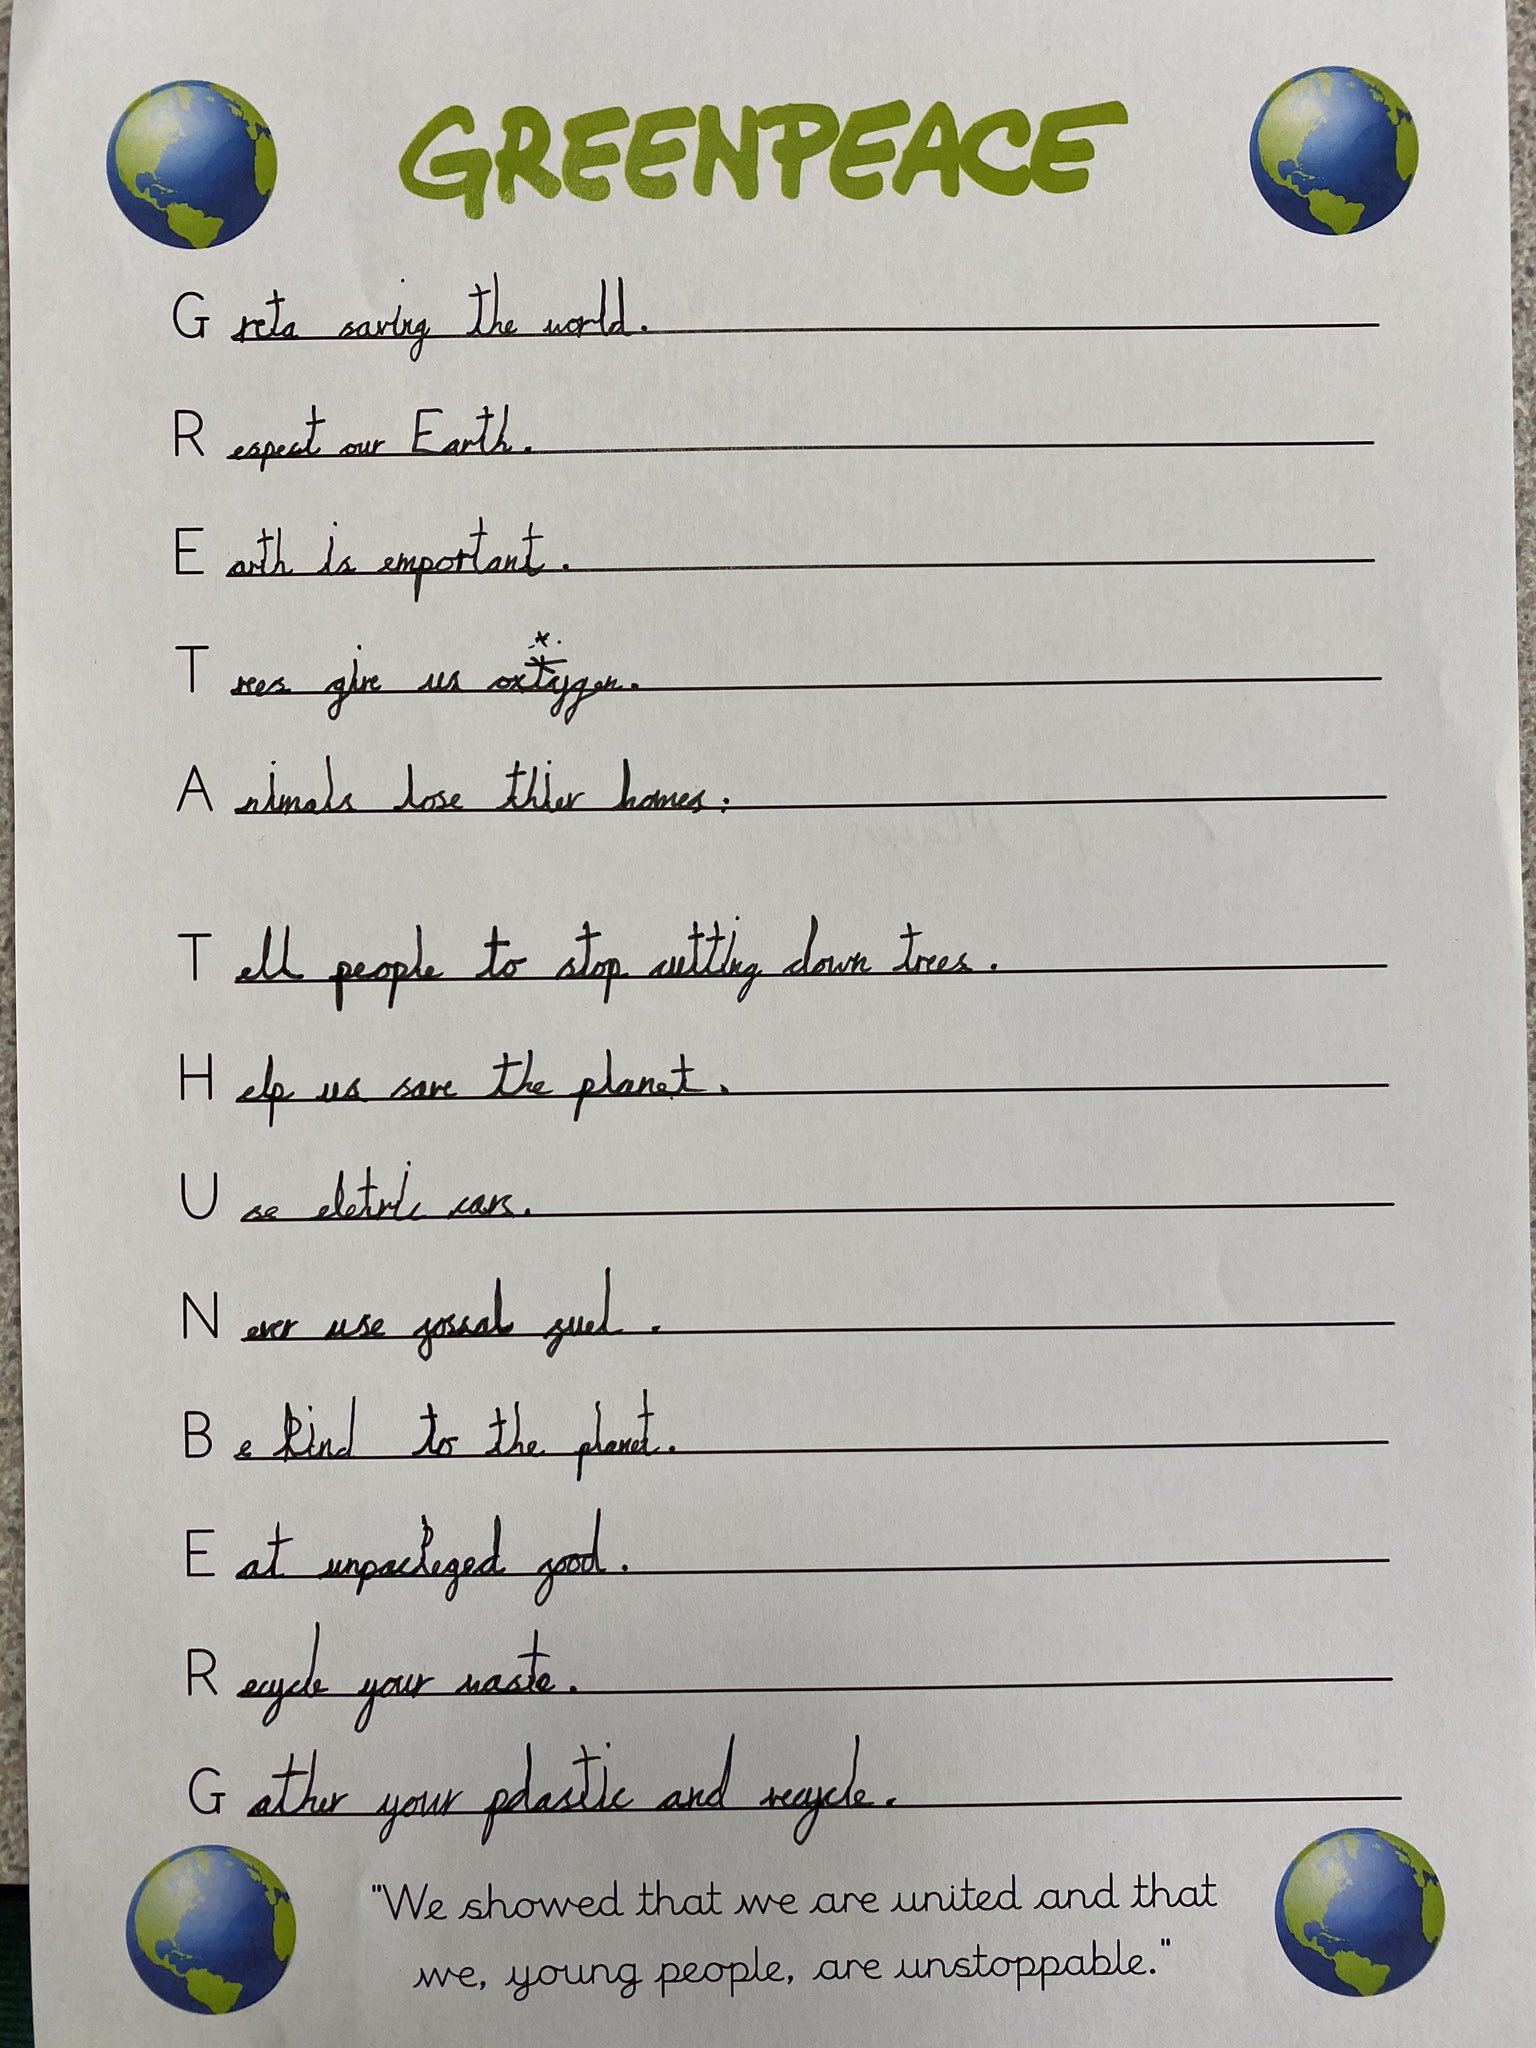 GREENPEACE
Greta saving the world.
Respect our Earth.
Earth is emportant.
Trees give us oxtygen.
Animals lose thier homes.
Tell people to stop cutting down trees.
Help us save the planet.
Use eletric cars.
Never use fossal fuel.
Be kind to the planet.
Eat unpackeged food.
Recycle your waste.
Gather your pdastic and recycle.
"We showed that we are united and that
we, young people, are unstoppable."